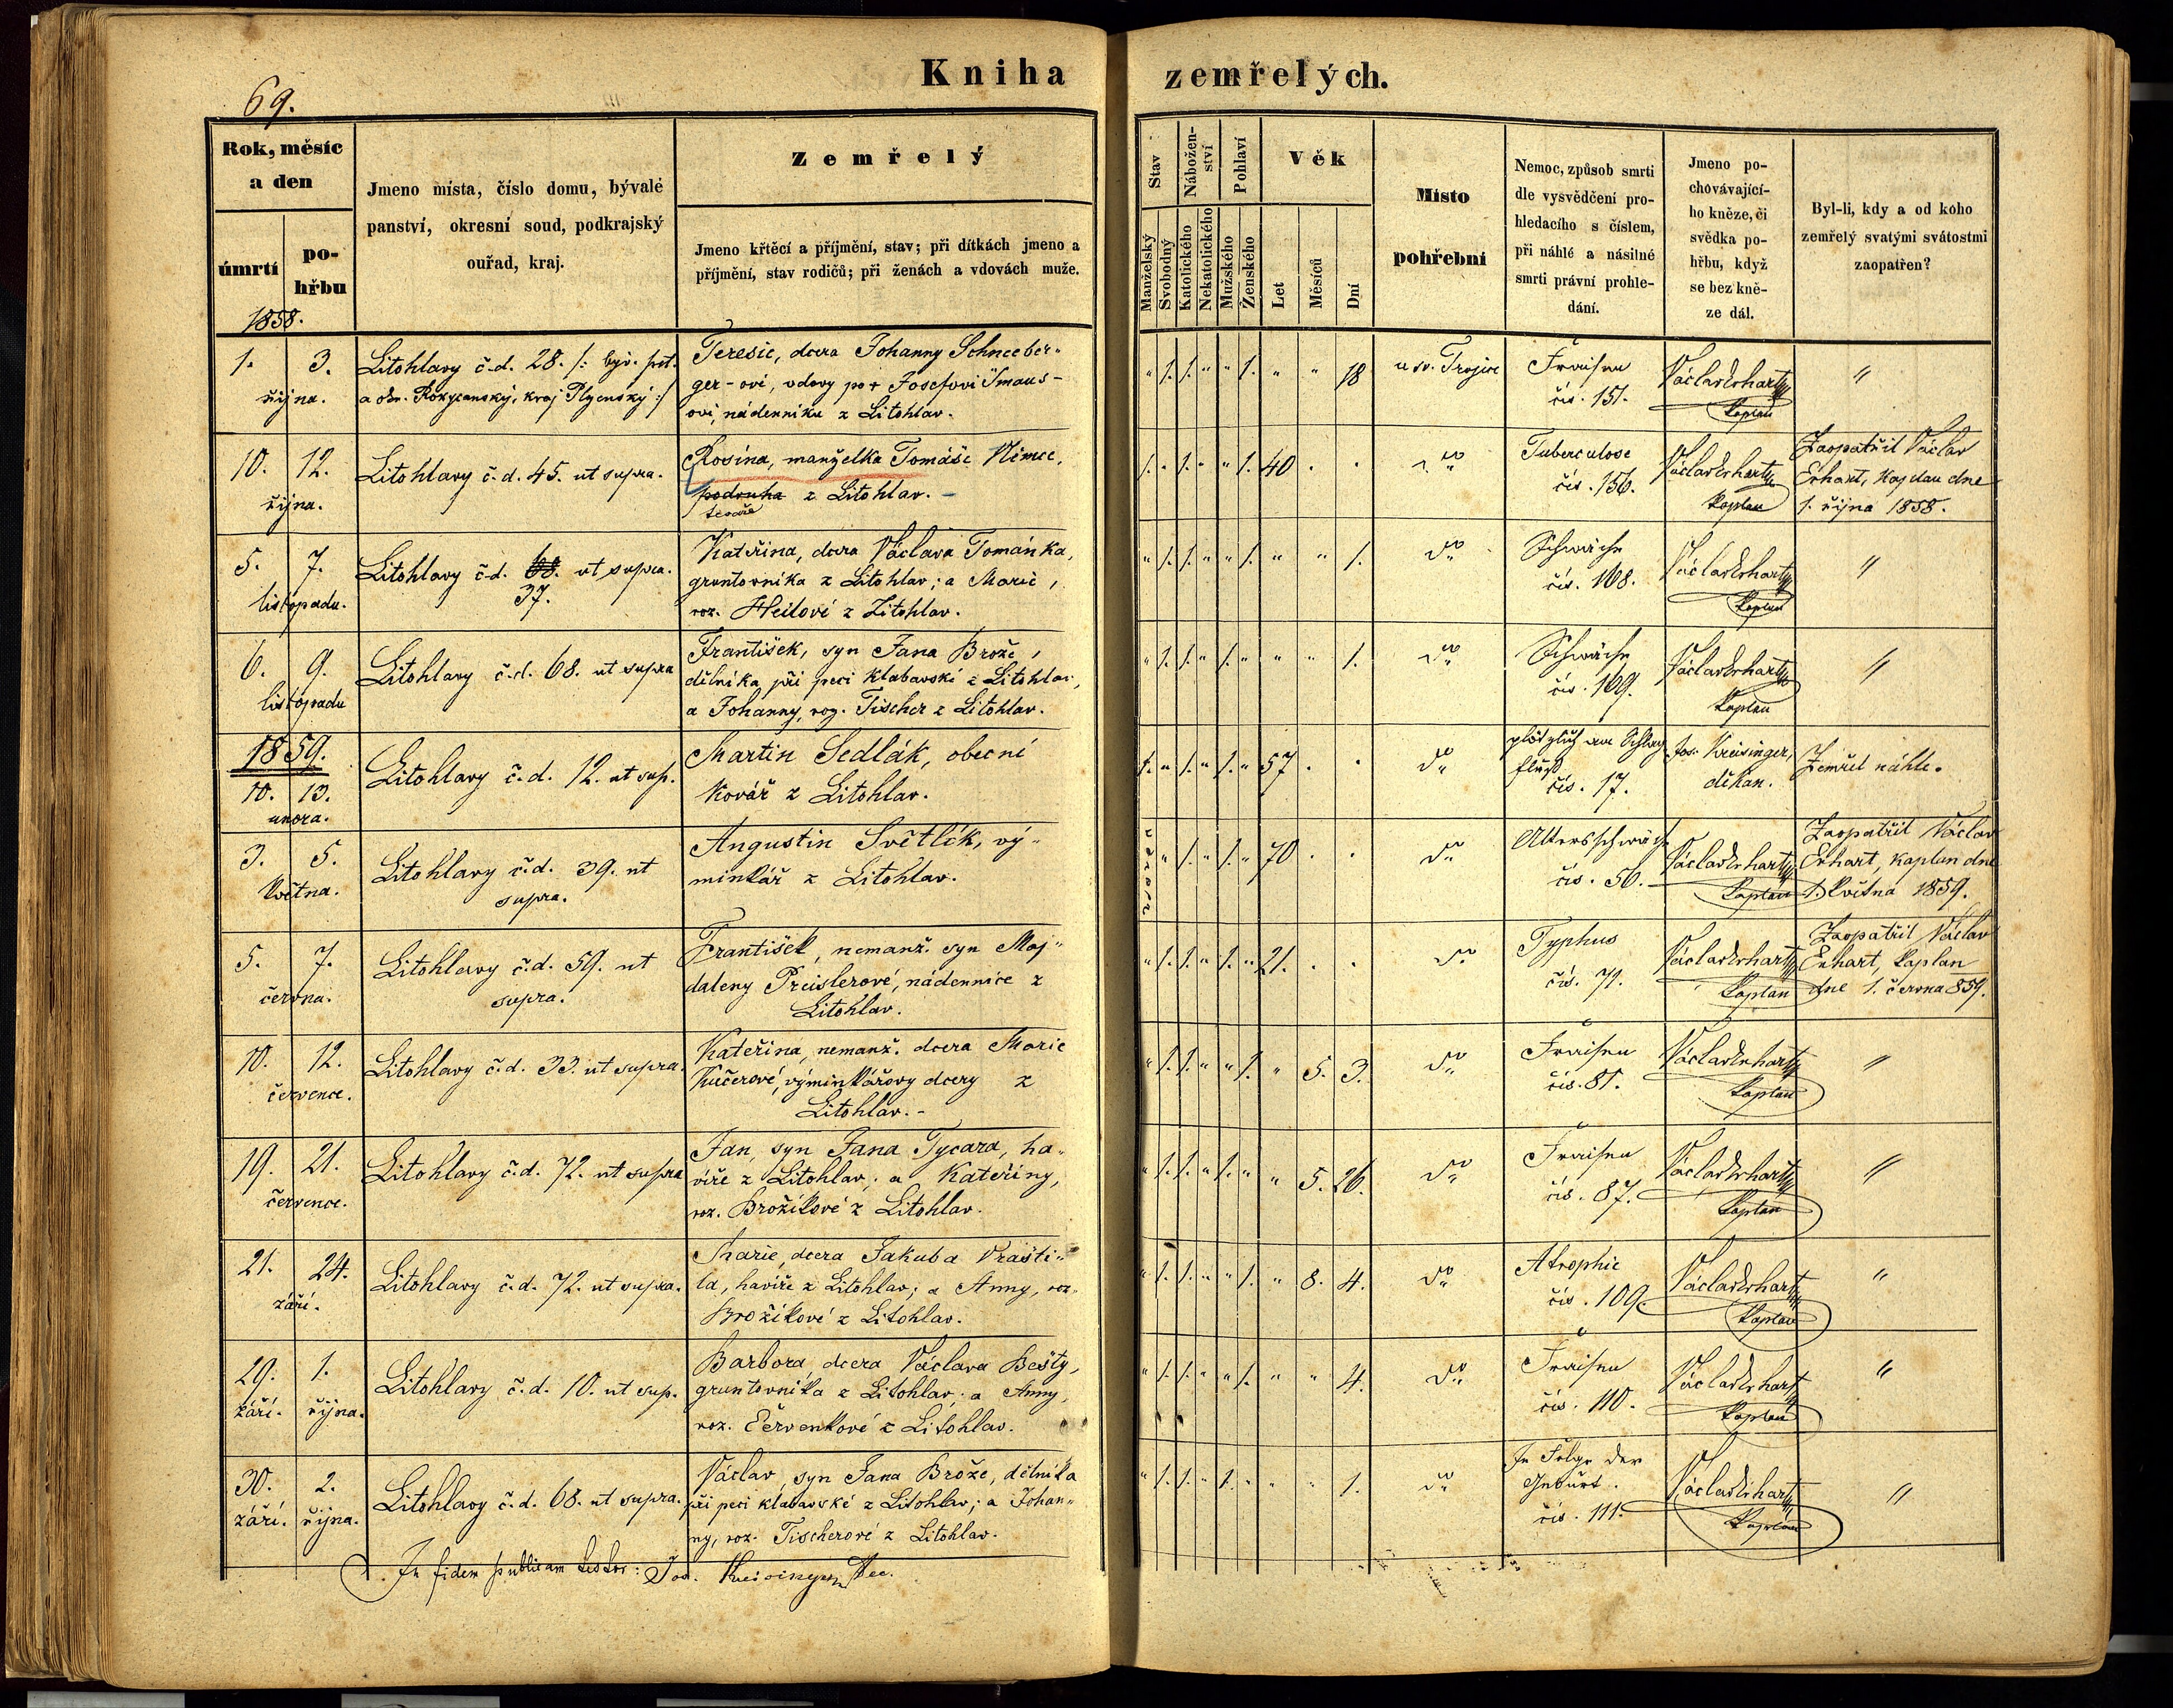 Kniha zemřelých.
69.
Rok, měsíc
a den
úmrtí
po-
hřbu
1858.
Jmeno místa, číslo domu, bývalé
panství, okresní soud, podkrajský
ouřad, kraj.
Zemřelý
Jmeno křtěcí a příjmění, stav; při dítkách jmeno a
příjmění, stav rodičů; při ženách a vdovách muže.
Stav
Manželský
Svobodný
Nábožen-
ství
Katolického
Nekatolického
Pohlaví
Mužského
Ženského
Věk
Let
Měsíců
Dní
Místo
pohřební
Nemoc, způsob smrti
dle vysvědčení pro-
hledacího s číslem,
při náhlé a násilné
smrti právní prohle-
dání.
Jmeno po-
chovávající-
ho kněze, či
svědka po-
hřbu, když
se bez kně-
ze dál.
Byl-li, kdy a od koho
zemřelý svatými svátostmi
zaopatřen?
1. 3.
října.
Litohlavy č.d. 28. /: býv. pst.
a okr. Rokycanský, kraj Plzenský :/
Teresie, dcera Johanny Schneeber-
ger-ové, vdovy po + Josefovi Šmaus-
ovi, nádenníku z Litohlav.
" 1. 1. " " 1. " " 18
u sv. Trojice
Fraisen
čís. 151.
Václav Erhart
kaplan
"
10. 12.
října.
Litohlavy č.d. 45. ut supra.
Rosina, manželka Tomáše Němce,
podruha z Litohlav.
tesaře
1. " 1. " " 1. 40 . .
Tuberculose
čís. 156.
Václav Erhart
kaplan
Zaopatřil Václav
Erhart, kaplan dne
1. října 1858.
5. 7.
listopadu.
Litohlavy č.d. 68. ut supra.
37.
Kateřina, dcera Václava Tománka,
gruntovníka z Litohlav; a Marie,
roz. Heilové z Litohlav.
" 1. 1. " " 1. " " 1.
Schwäche
čís. 168.
Václav Erhart
kaplan
"
6. 9.
listopadu
Litohlavy č.d. 68. ut supra
František, syn Jana Brože,
dělníka při peci klabavské z Litohlav,
a Johanny, roz. Tischer z Litohlav.
" 1. 1. " 1. " " " 1.
Schwäche
čís. 169.
Václav Erhart
kaplan
"
1859.
10. 13.
unora.
Litohlavy č.d. 12. ut sup.
Martin Sedlák, obecní
kovář z Litohlav.
1. " 1. " 1. " 57 . .
plötzlich am Schlag
fluß
čís. 17.
Jos. Kreisinger,
děkan.
Zemřel náhle.
3. 5.
května.
Litohlavy č.d. 39. ut
supra.
Augustin Světlík, vý-
minkář z Litohlav.
vdovec
" 1. " 1. " 70 . .
Altersschwäche
čís. 56.
Václav Erhart
kaplan
Zaopatřil Václav
Erhart, kaplan dne
1. května 1859.
5. 7.
června.
Litohlavy č.d. 59. ut
supra.
František, nemanž. syn Maj-
daleny Preislerové, nádennice z
Litohlav.
" 1. 1. " 1. " 21. . .
Typhus
čís. 71.
Václav Erhart
kaplan
Zaopatřil Václav
Erhart, kaplan
dne 1. června 859.
10. 12.
července.
Litohlavy č.d. 33. ut supra.
Kateřina, nemanž. dcera Marie
Kučerové, výminkářovy dcery z
Litohlav.-
" 1. 1. " " 1. " 5. 3.
Fraisen
čís. 81.
Václav Erhart
kaplan
"
19. 21.
července.
Litohlavy č.d. 72. ut supra
Jan, syn Jana Tycara, ha-
víře z Litohlav; a Kateřiny,
roz. Brožíkové z Litohlav.
" 1. 1. " 1. " " 5. 26.
Fraisen
čís. 87.
Václav Erhart
kaplan
"
21. 24.
září.
Litohlavy č.d. 72. ut supra.
Marie, dcera Jakuba Vrašti-
la, havíře z Litohlav; a Anny, roz.
Brožíkové z Litohlav.
" 1. 1. " " 1. " 8. 4.
Atrophie
čís. 109.
Václav Erhart
kaplan
"
29. 1.
září. října.
Litohlavy č.d. 10. ut sup.
Barbora dcera Václava Bešty,
gruntovníka z Litohlav; a Anny,
roz. Červenkové z Litohlav.
" 1. 1. " " 1. " " 4.
Fraisen
čís. 110.
Václav Erhart
kaplan
"
30. 2.
září. října.
Litohlavy č.d. 68. ut supra.
Václav, syn Jana Brože, dělníka
při peci klabavské z Litohlav; a Johan-
ny, roz. Tischerové z Litohlav.
" 1. 1. " 1. " " " 1.
In Folge der
Geburt.
čís. 111.
Václav Erhart
kaplan
"
In fidem publicam testor: Jos. Kreisinger Dec.